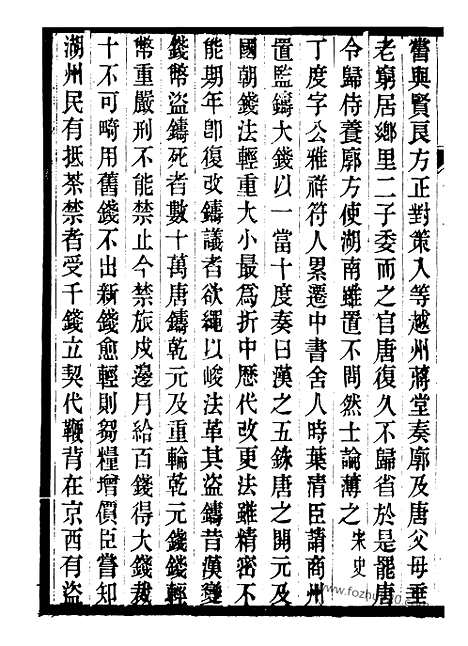 嘗與賢良方正對策入等越州蔣堂奏廓及唐父母垂
老窮居鄉里二子委而之官唐復久不歸省於是罷唐
令歸侍養廓方使湖南雖置不問然士論薄之宋史
丁度字公雅祥符人累遷中書舍人時葉清臣請商州
置監鑄大錢以一當十度奏曰漢之五銖唐之開元及
國朝錢法輕重大小最為折中歷代改更法雖精密不
能期年卽復改鑄議者欲繩以峻法革其盜鑄昔漢變
錢幣盜鑄死者數十萬唐鑄乾元及重輪乾元錢錢輕
幣重嚴刑不能禁止今禁旅戍邊月給百錢得大錢裁
十不可畸用舊錢不出新錢愈輕則芻糧增價臣嘗知
湖州民有抵茶禁者受千錢立契代鞭背在京西有盜
www.fozhu920.com